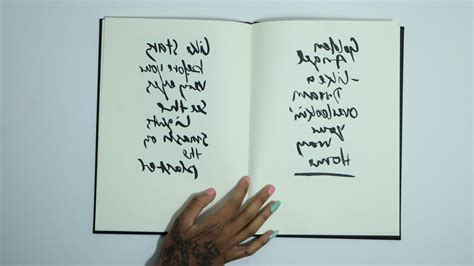 Golden
Angel
Like a
Dream
overlookin'
your
way
Home
Like Stars
before your
very eyes
See the
Lights
smash on
the
plaster